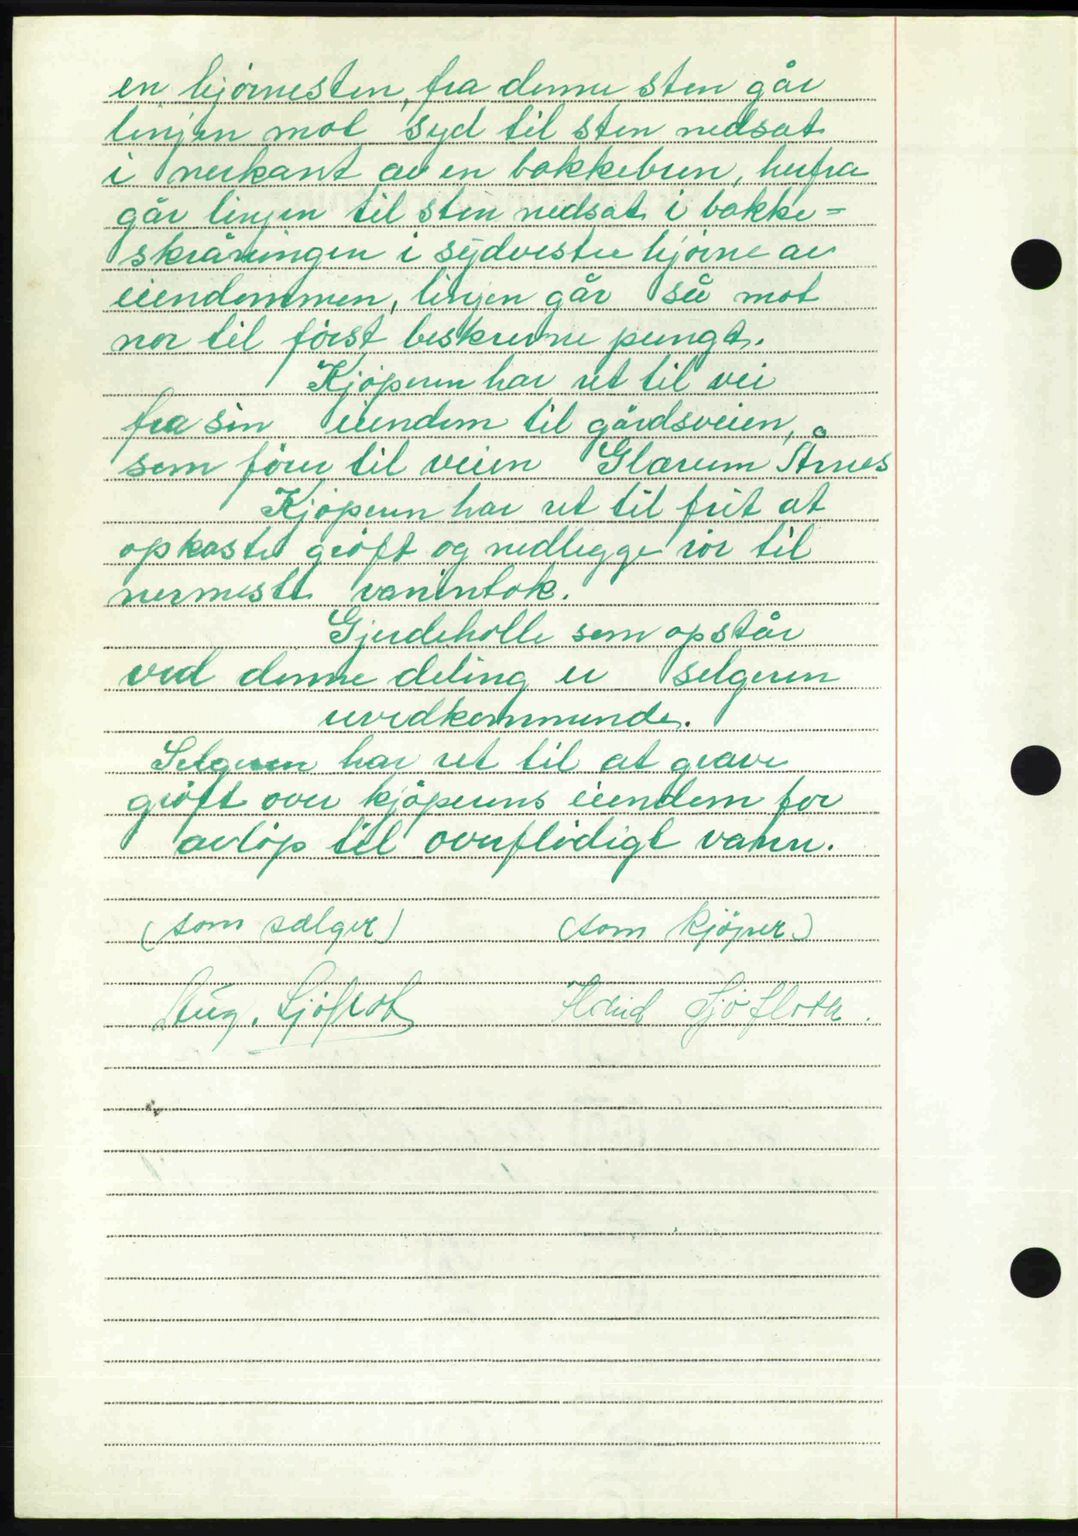 en hjörnesten, fra denne sten går
linjen mot syd til sten nedsat
i nerkant av en bakkebrin, herfra
går linjen til sten nedsat i bakke=
skråningen i sydvestre hjörne av
eiendommen, linjen går så mot
nor til först beskrevne pungt.
Kjöperen har ret til vei
fra sin eiendom til gårdsveien,
som förer til veien Glærum Årnes
Kjöperen har ret til frit at
opkaste gröft og nedlegge rör til
nermeste vanintak.
Gjerdeholle som opstår
ved denne deling er selgeren
uvedkommende.
Selgeren har ret til at grave
gröft over kjöperens eiendom for
avlöp til overflödigt vann.
(som sælger) (som kjöper)
Sjöflot Sjöfloth.